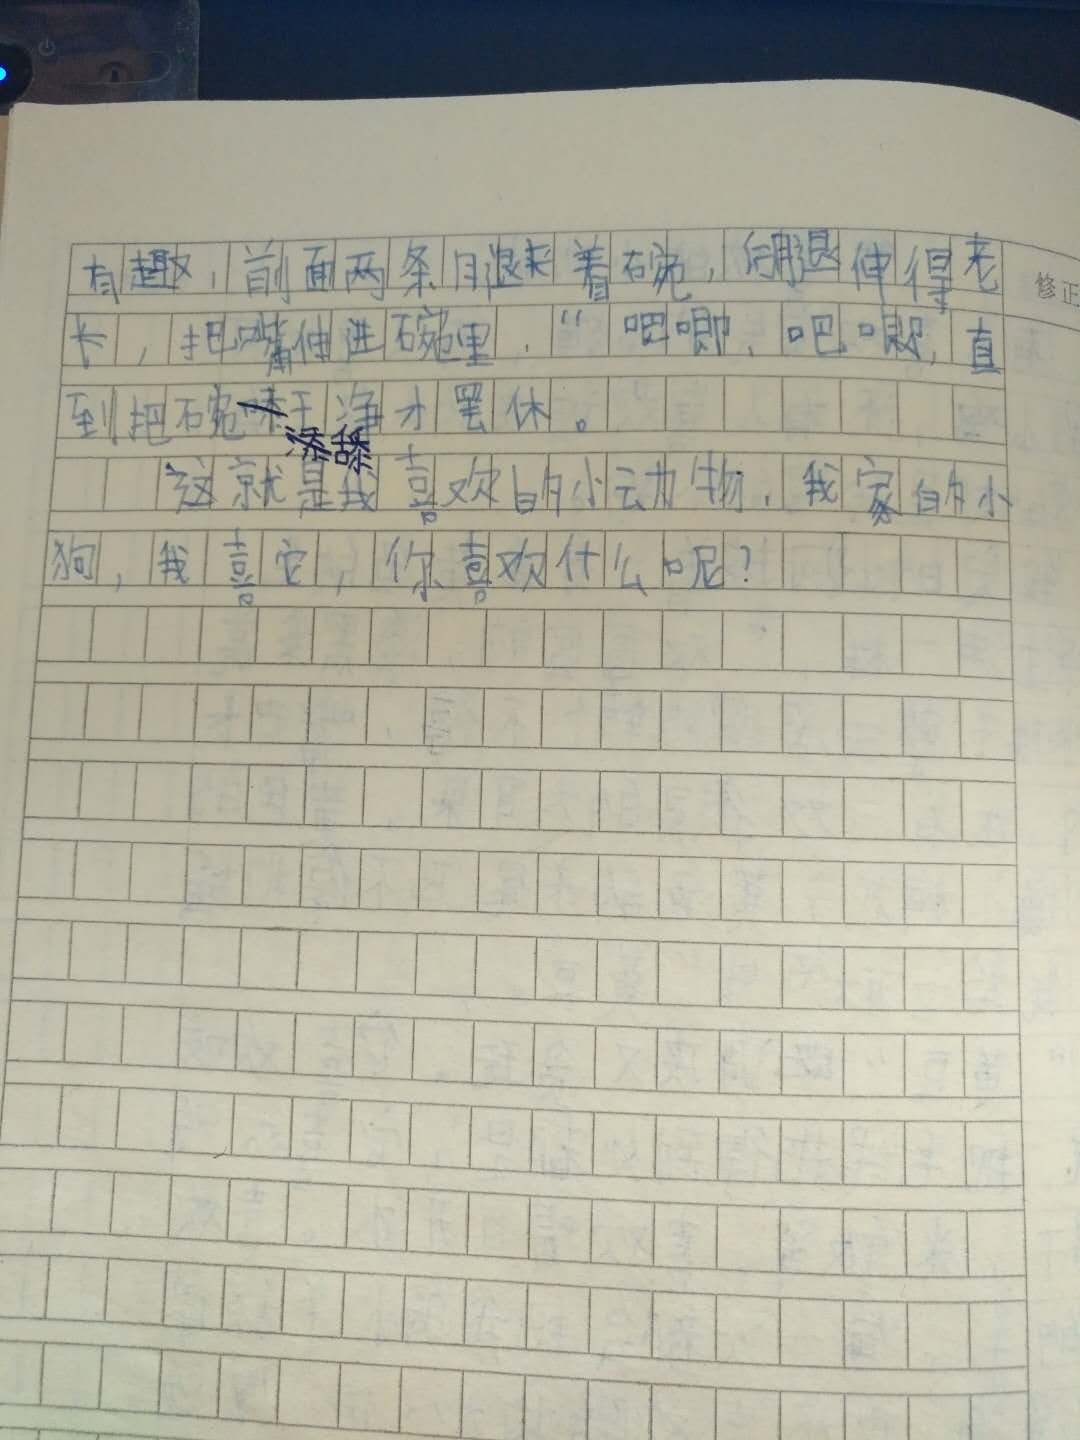 有趣，前面两条腿夹着碗，后腿伸得老
长，把嘴伸进碗里，“吧唧，吧唧，直
到把碗干净才罢休。
添舔
这就是我喜欢的小动物，我家的小
狗，我喜它，你喜欢什么呢？
修正